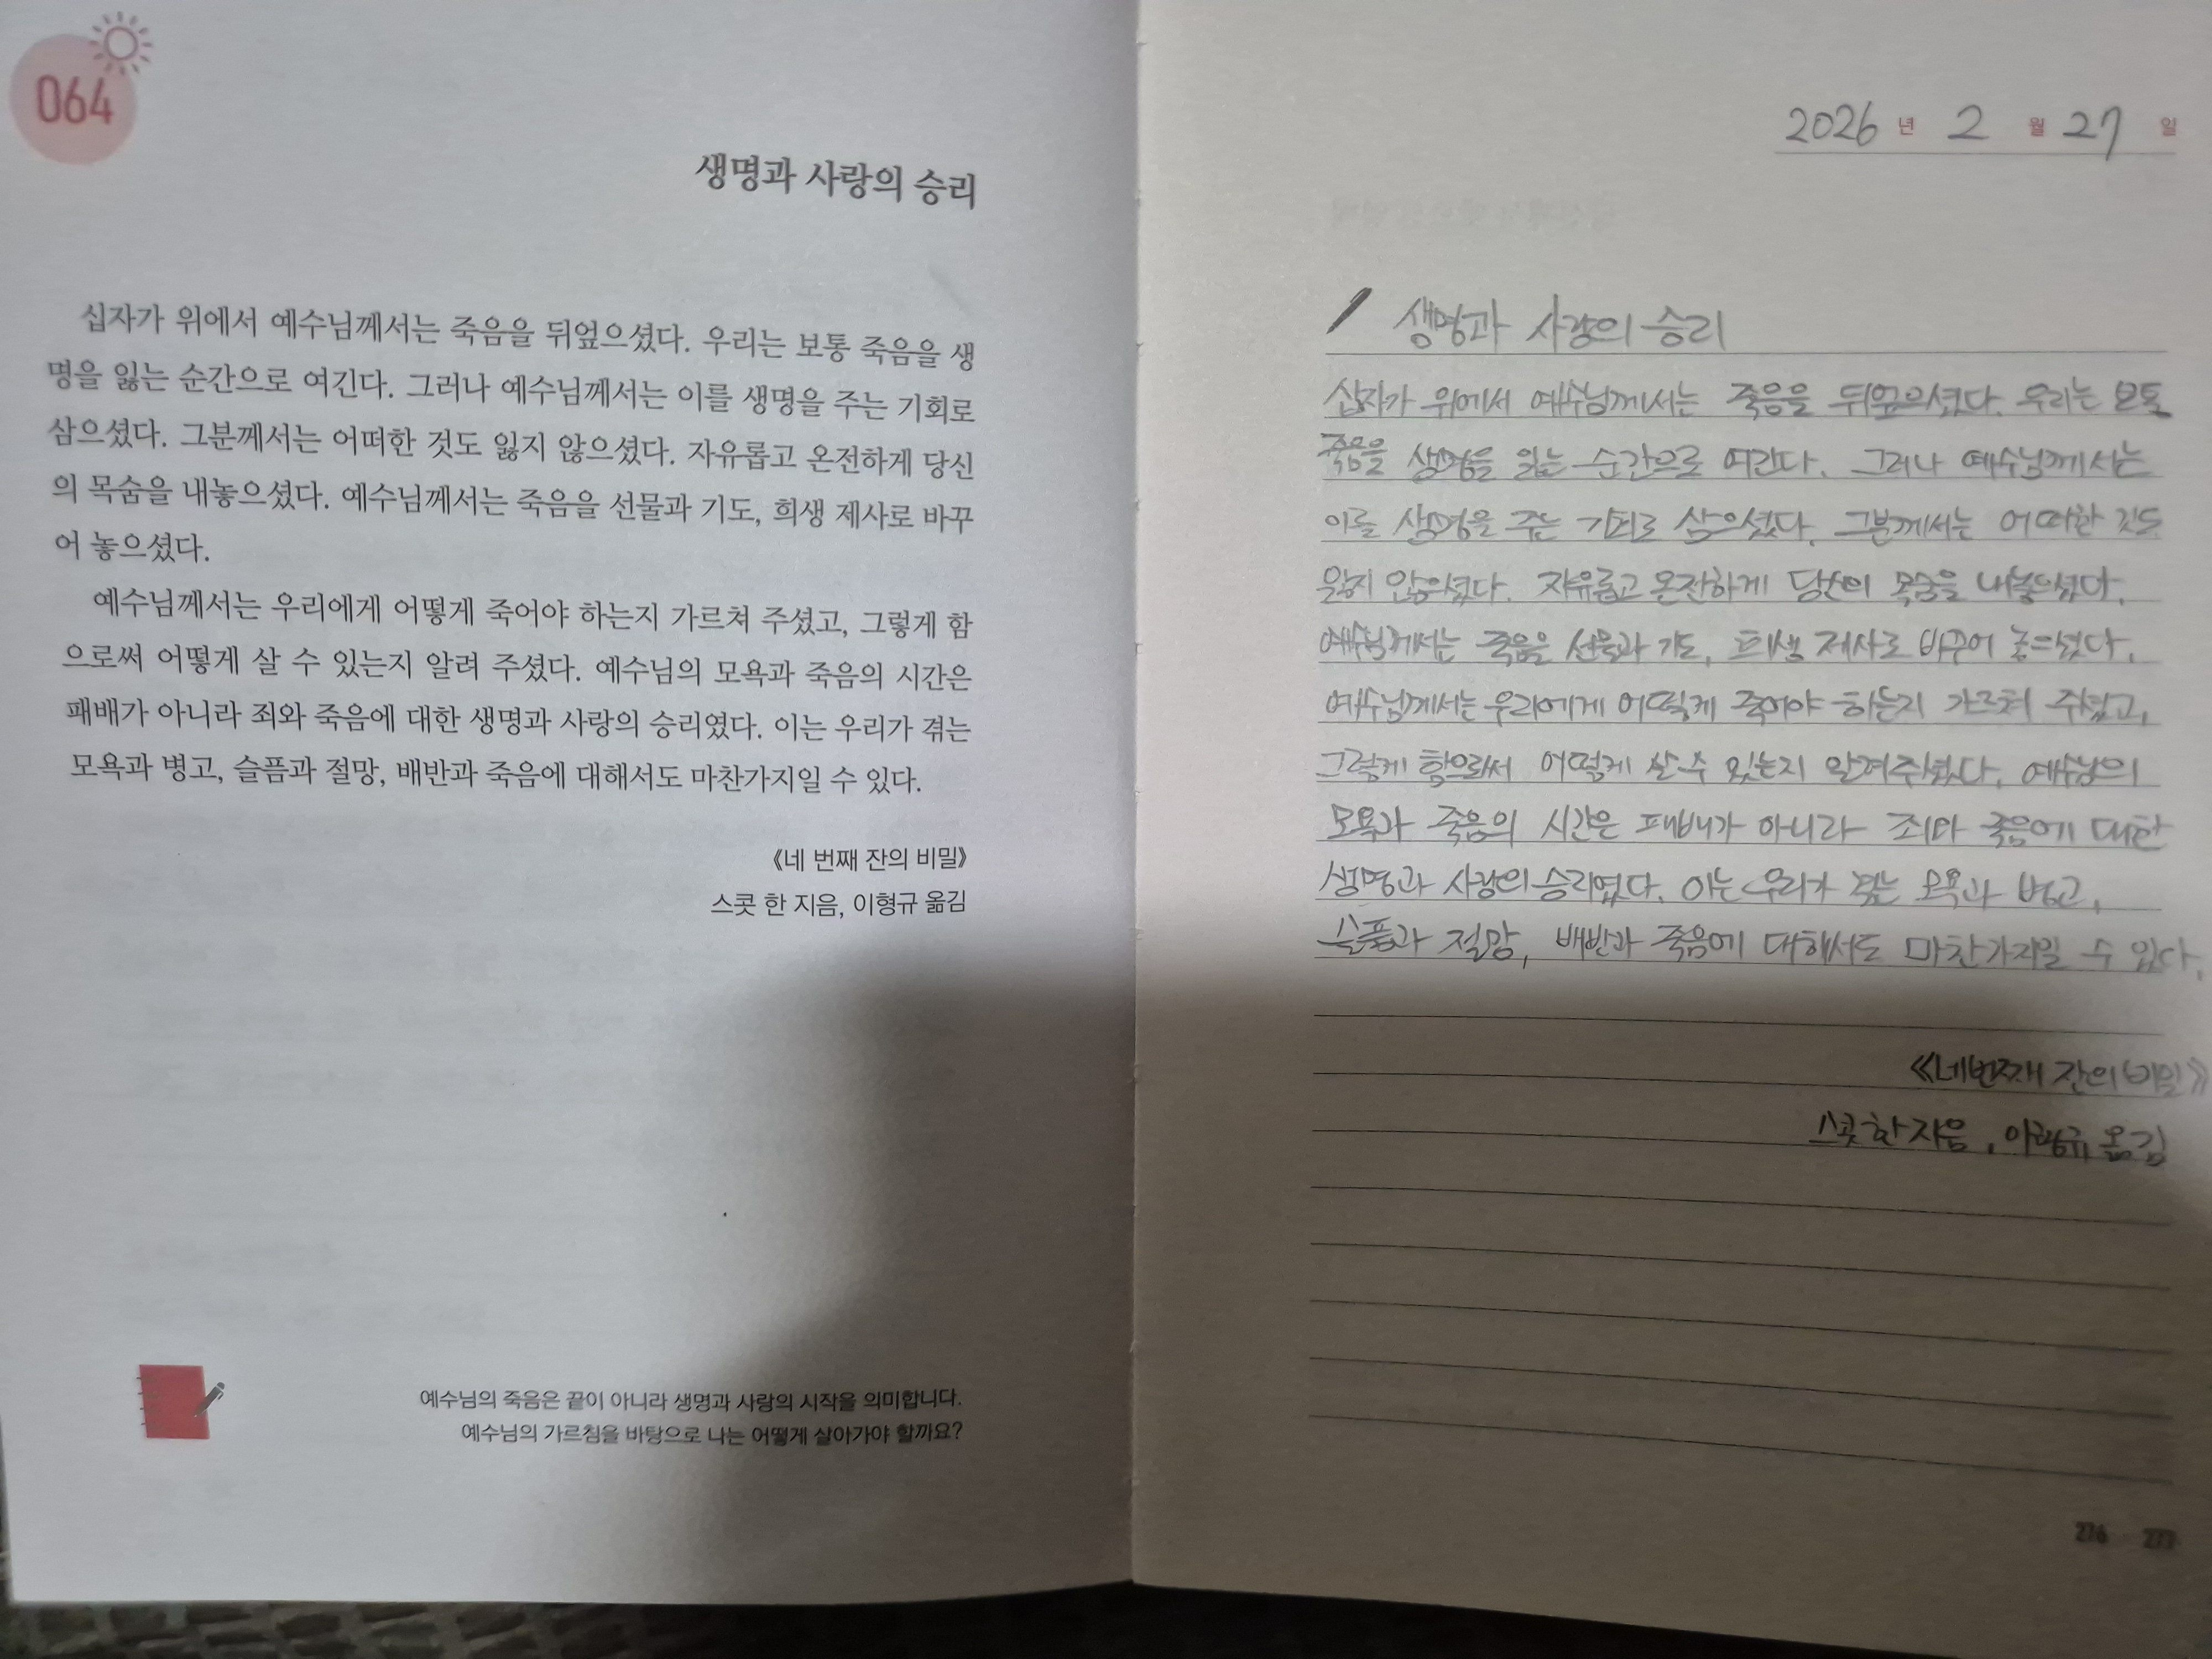 064
생명과 사랑의 승리
십자가 위에서 예수님께서는 죽음을 뒤엎으셨다. 우리는 보통 죽음을 생
명을 잃는 순간으로 여긴다. 그러나 예수님께서는 이를 생명을 주는 기회로
삼으셨다. 그분께서는 어떠한 것도 잃지 않으셨다. 자유롭고 온전하게 당신
의 목숨을 내놓으셨다. 예수님께서는 죽음을 선물과 기도, 희생 제사로 바꾸
어 놓으셨다.
예수님께서는 우리에게 어떻게 죽어야 하는지 가르쳐 주셨고, 그렇게 함
으로써 어떻게 살 수 있는지 알려 주셨다. 예수님의 모욕과 죽음의 시간은
패배가 아니라 죄와 죽음에 대한 생명과 사랑의 승리였다. 이는 우리가 겪는
모욕과 병고, 슬픔과 절망, 배반과 죽음에 대해서도 마찬가지일 수 있다.
《네 번째 잔의 비밀》
스콧 한 지음, 이형규 옮김
예수님의 죽음은 끝이 아니라 생명과 사랑의 시작을 의미합니다.
예수님의 가르침을 바탕으로 나는 어떻게 살아가야 할까요?
2026 년 2 월 27 일
생명과 사랑의 승리
십자가 위에서 예수님께서는 죽음을 뒤엎으셨다. 우리는 보통
죽음을 생명을 잃는 순간으로 여긴다. 그러나 예수님께서는
이를 생명을 주는 기회로 삼으셨다. 그분께서는 어떠한 것도
잃지 않으셨다. 자유롭고 온전하게 당신의 목숨을 내놓으셨다.
예수님께서는 죽음을 선물과 기도, 희생 제사로 바꾸어 놓으셨다.
예수님께서는 우리에게 어떻게 죽어야 하는지 가르쳐 주셨고,
그렇게 함으로써 어떻게 살 수 있는지 알려주셨다. 예수님의
모욕과 죽음의 시간은 패배가 아니라 죄와 죽음에 대한
생명과 사랑의 승리였다. 이는 우리가 겪는 모욕과 병고,
슬픔과 절망, 배반과 죽음에 대해서도 마찬가지일 수 있다.
《네번째 잔의 비밀》
스콧 한 지음, 이형규 옮김
276 277